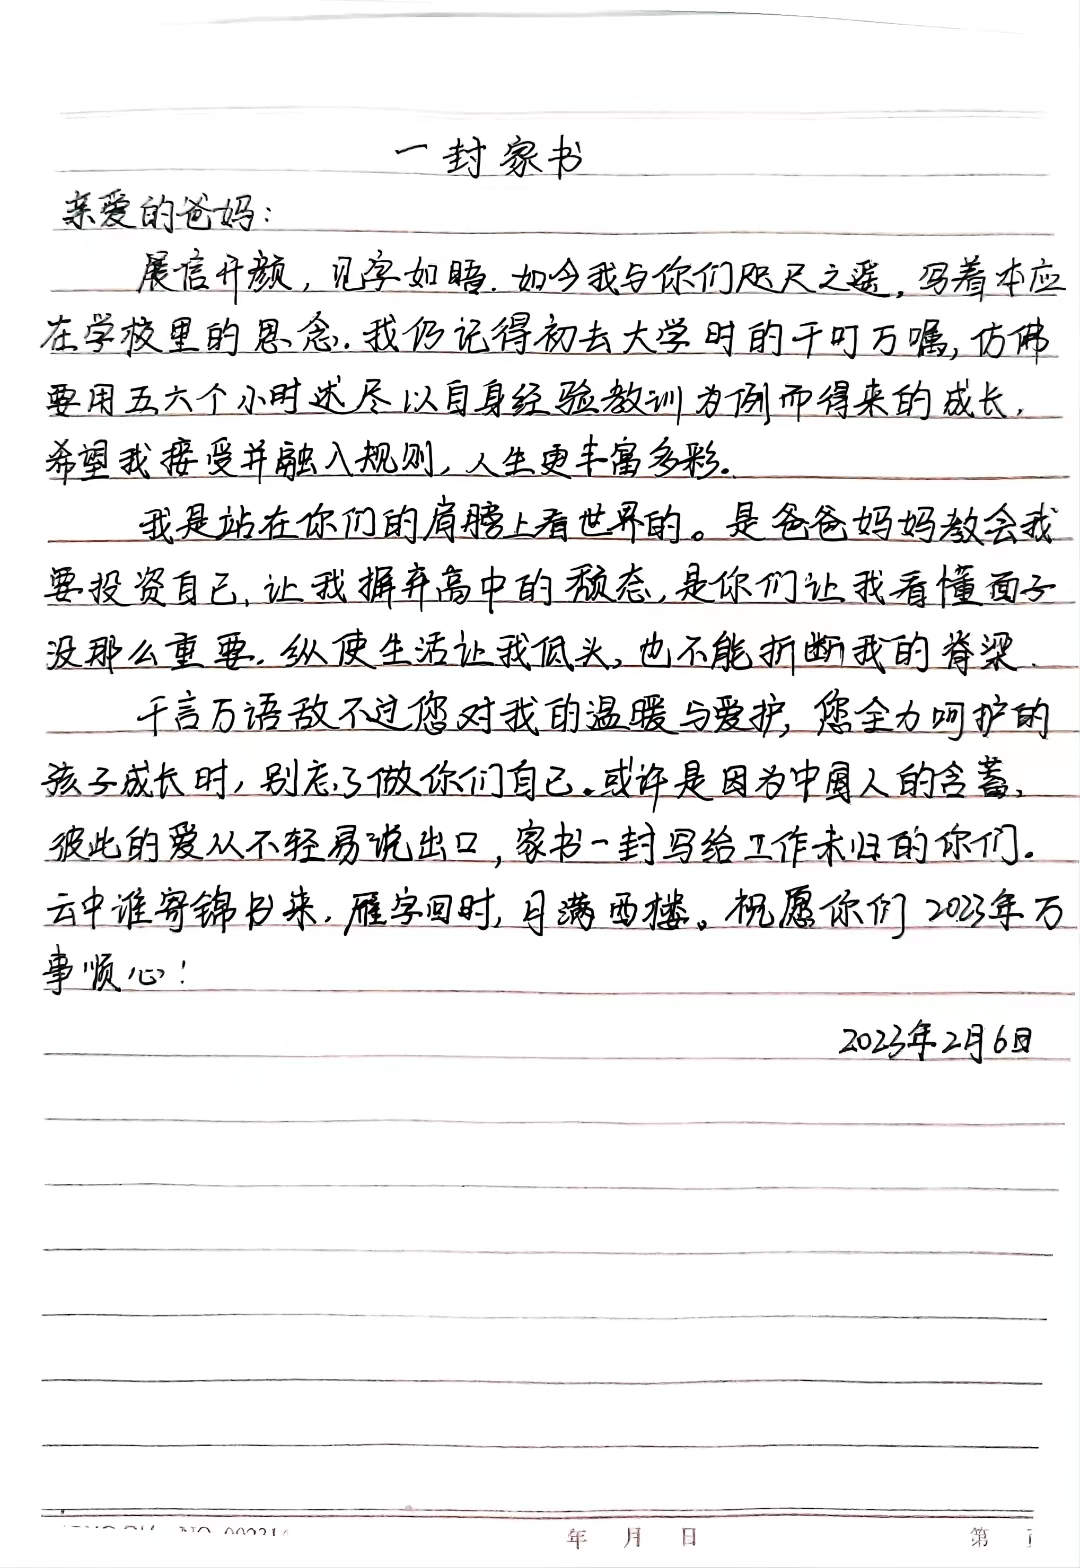 一封家书
亲爱的爸妈：
展信开颜，见字如晤．如今我与你们咫尺之遥，写着本应
在学校里的思念．我仍记得初去大学时的千叮万嘱，仿佛
要用五六个小时述尽以自身经验教训为例而得来的成长．
希望我接受并融入规则，人生更丰富多彩．
我是站在你们的肩膀上看世界的。是爸爸妈妈教会我
要投资自己，让我摒弃高中的颓态，是你们让我看懂面子
没那么重要．纵使生活让我低头，也不能折断我的脊梁．
千言万语敌不过您对我的温暖与爱护，您全力呵护的
孩子成长时，别忘了做你们自己．或许是因为中国人的含蓄，
彼此的爱从不轻易说出口，家书一封写给工作未归的你们。
云中谁寄锦书来，雁字回时，月满西楼。祝愿你们2023年万
事顺心！
2023年2月6日
年 月 日 第